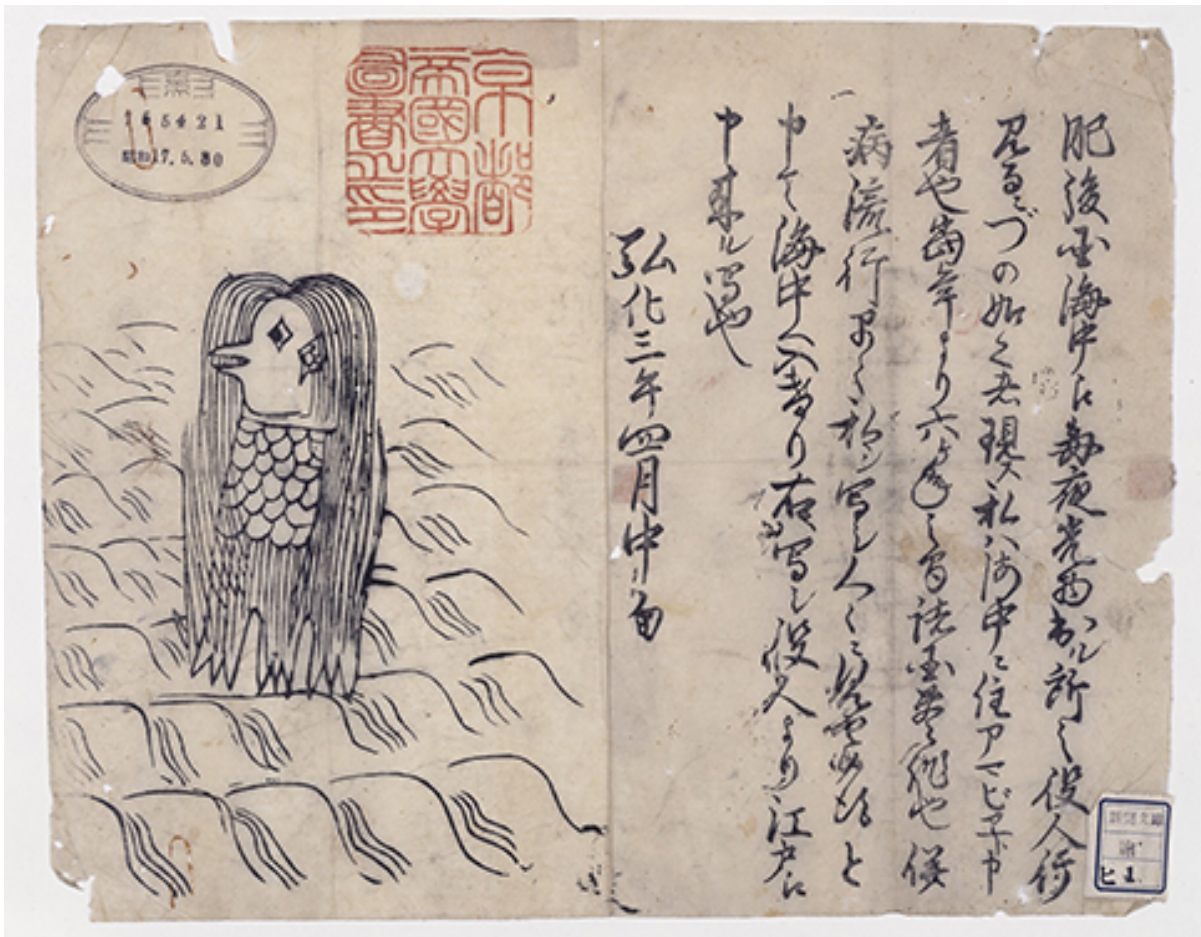 肥後国海中え毎夜光物出ル所之役人行
見るニづの如く者現ス私ハ海中ニ住アマビヱト申
者也當年より六ヶ年之間諸国豊作也併
病流行早々私シ写シ人々ニ見せ候得と
申て海中へ入けり右写シ役人より江戸え
申来ル写也
弘化三年四月中旬
京都
帝國大學
圖書之印
昭和17.5.30
ヒ1